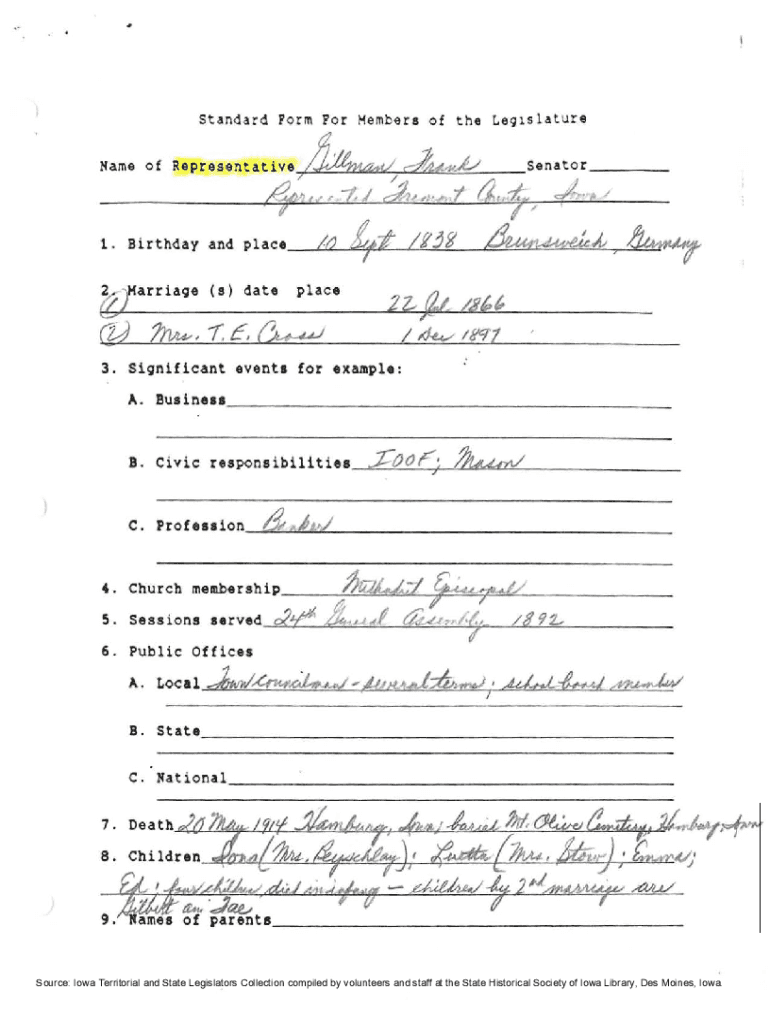 Standard Form For Members of the Legislature
Name of Representative Gillman, Frank Senator
Represented Fremont County, Iowa
1. Birthday and place 10 Sept 1838 Brunsweich, Germany
2. Marriage (s) date place
(1) 22 Jul 1866
(2) Mrs. T. E. Cross 1 Dec 1897
3. Significant events for example:
A. Business
B. Civic responsibilities IOOF; Mason
C. Profession Banker
4. Church membership Methodist Episcopal
5. Sessions served 24th General Assembly 1892
6. Public Offices
A. Local Town Councilman - several terms; school board member
B. State
C. National
7. Death 20 May 1914 Hamburg, Iowa; buried Mt. Olive Cemetery, Hamburg, Iowa
8. Children Iona (Mrs. ); Luetta (Mrs. Stow); Emma;
Ed; four children died in infancy - children by 2nd marriage are
Gilbert and Fae
9. Names of parents
Source: Iowa Territorial and State Legislators Collection compiled by volunteers and staff at the State Historical Society of Iowa Library, Des Moines, Iowa